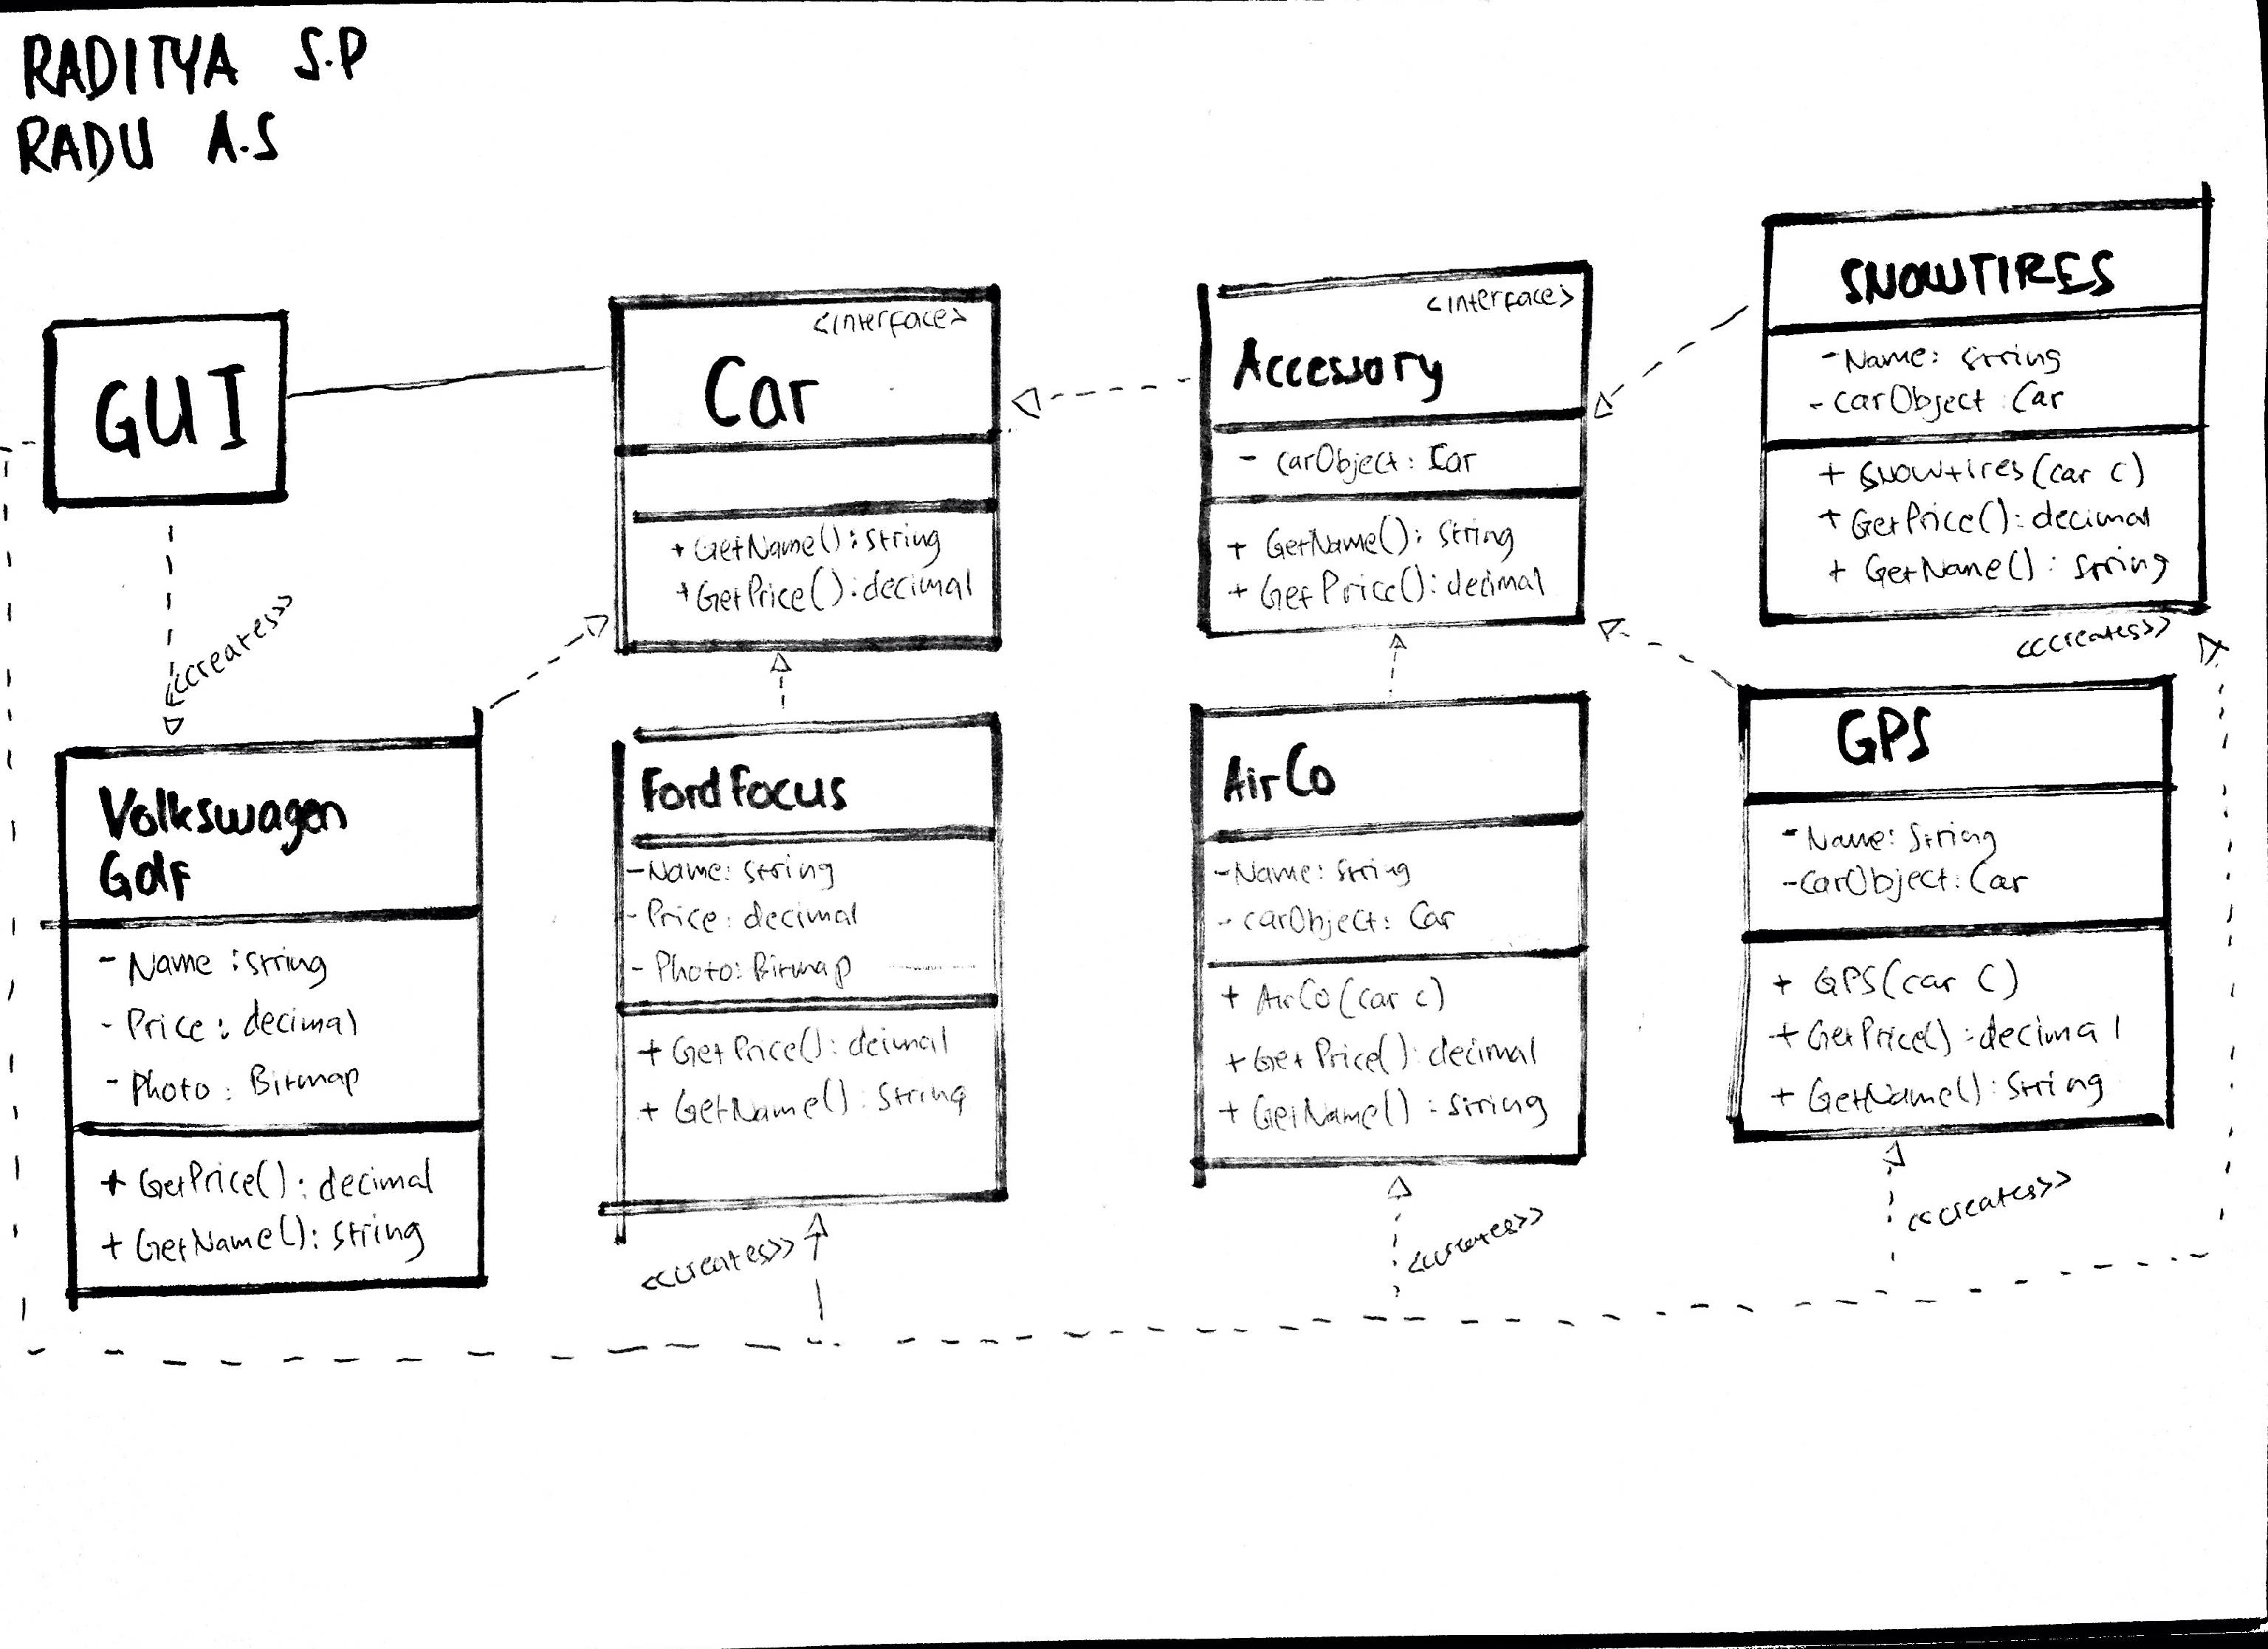 RADITYA S.P
RADU A.S
GUI
<<creates>>
<interface>
Car
+ GetName() : string
+ GetPrice() : decimal
<interface>
Accessory
- carObject : Icar
+ GetName() : String
+ GetPrice() : decimal
SNOWTIRES
- Name : string
- carObject : Car
+ snowtires(car c)
+ GetPrice() : decimal
+ GetName() : string
<<creates>>
Volkswagen
Golf
- Name : string
- Price : decimal
- Photo : Bitmap
+ GetPrice() : decimal
+ GetName() : string
Ford Focus
- Name : string
- Price : decimal
- Photo : Bitmap
+ GetPrice() : decimal
+ GetName() : String
<<creates>>
AirCo
- Name : string
- carObject : Car
+ AirCo(car c)
+ GetPrice() : decimal
+ GetName() : string
<<creates>>
GPS
- Name : String
- carObject : Car
+ GPS(car C)
+ GetPrice() : decimal
+ GetName() : String
<<creates>>